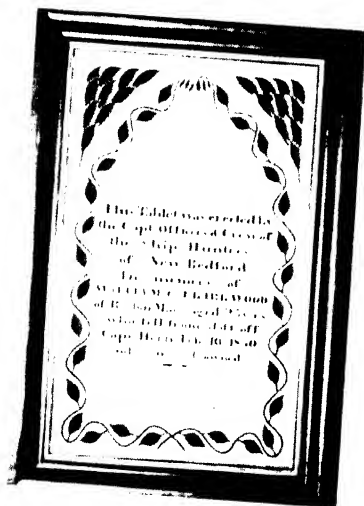 This Tablet was erected by
the Capt. Officers & Crew of
the Ship Huntress
of New Bedford
In memory of
WILLIAM C.
of Boston Mass. aged years
who fell from aloft off
Cape Horn Feb. 10 1850